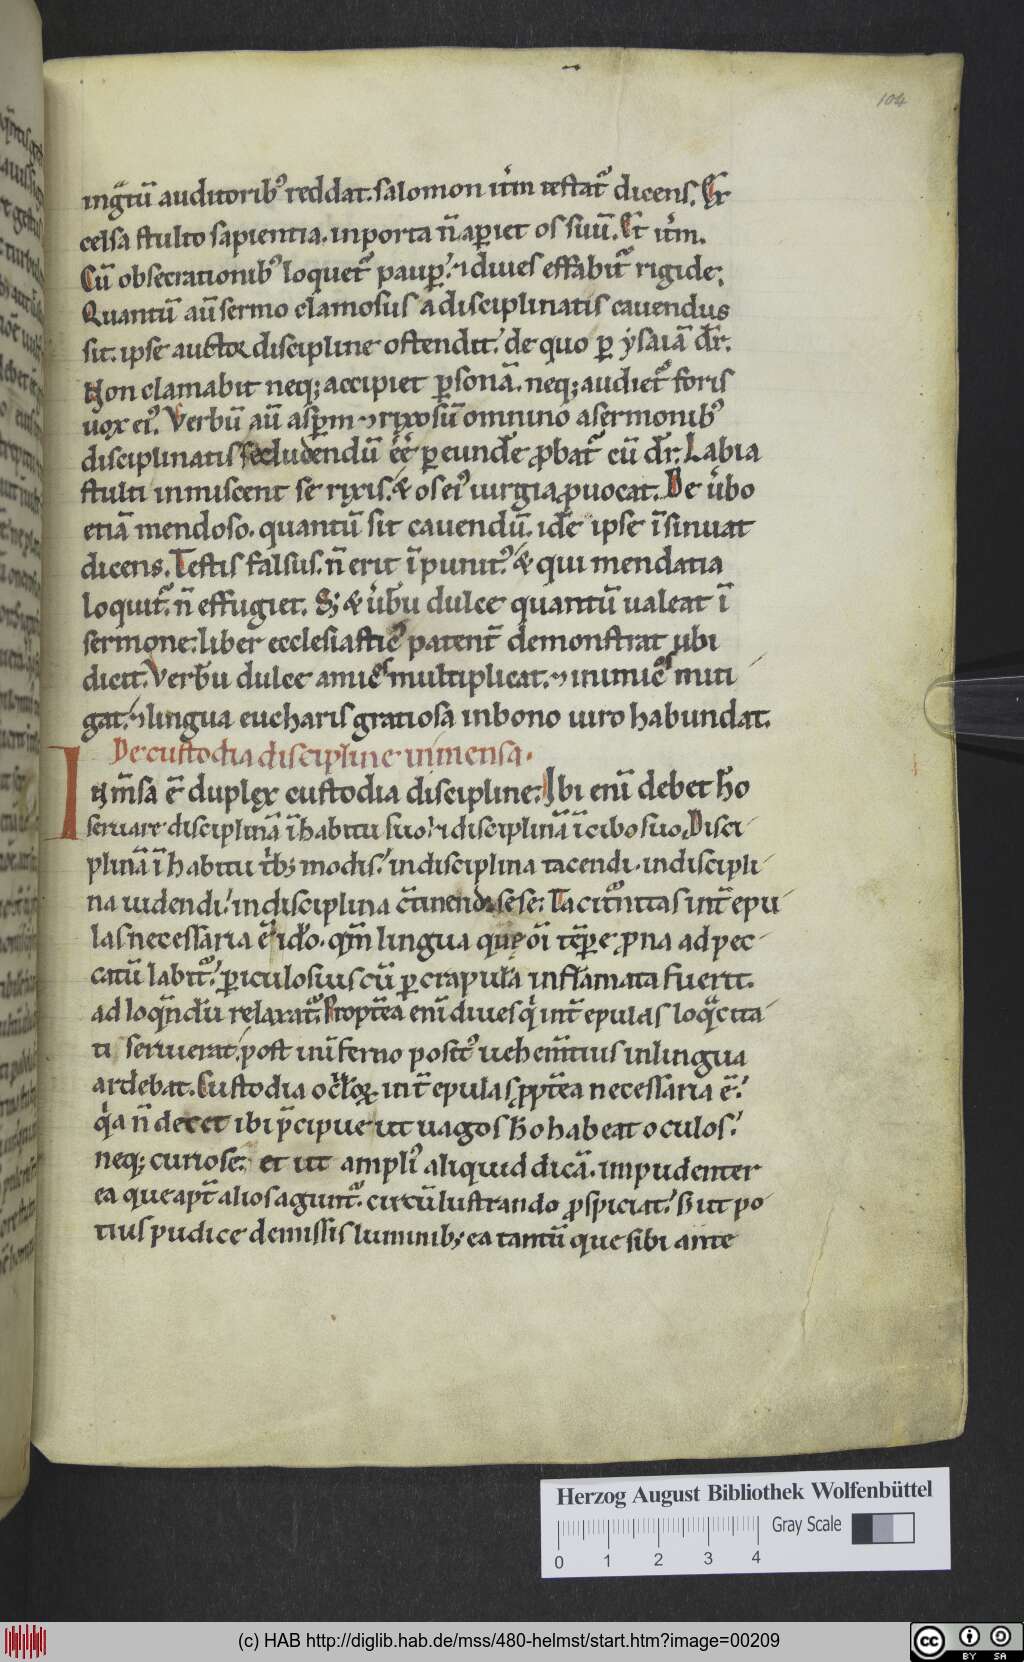 104
ingͣtū auditorib᷒ reddat. salomon itͥm testat᷑ dicens. Ex
celsa stulto sapientia. in porta n̄ ap̱iet os suū. Et itͥm.
Cū obsecrationib᷒ loquet᷑ paup̱. ⁊ diues effabit᷑ rigide.
Quantū aū sermo clamosus a disciplinatis cauendus
sit. ipse auctor discipline ostendit. de quo p̱ ysaiā dr̄.
Non clamabit neq; accipiet p̱sonā. neq; audiet᷑ foris
uox ei᷒. Verbū aū asp̱m ⁊ rixosū omnino a sermonib᷒
disciplinatis secludendū eē p̱ eundē ꝓbat᷑ cū dr̄. Labia
stulti inmiscent se rixis. & os ei᷒ iurgia ꝓuocat. De ūbo
etiā mendoso. quantū sit cauendū. idē ipse īsinuat
dicens. Testis falsus. n̄ erit īpunit᷒. & qui mendatia
loquit᷑. n̄ effugiet. S; & ūbū dulce quantū ualeat ī
sermone. liber ecclesiastic᷒ patent̄ demonstrat ubi
dicit. Verbū dulce amicos multiplicat. ⁊ inimicos miti
gat. ⁊ lingua eucharis gratiosa in bono uiro habundat.
De custodia discipline in mensa.
IN m̄sa ē duplex custodia discipline. Ibi enī debet hō
seruare disciplinā ī habitu suo. ⁊ disciplinā ī cibo suo. Disci
plinā ī habitu tͥb; modis. in disciplina tacendi. in discipli
na uidendi. in disciplina c̄tinendi sese. Taciturnitas int̄ epu
las necessaria ē idō. qm̄ lingua que oī tēp̱e ꝓna ad pec
catū labit᷑. p̱iculosius cū p̱ crapulā inflamata fuerit.
ad loqͣndū relaxat᷑. Propt̄ea enī diues qͥ int̄ epulas loqͣcita
ti seruierat. post in inferno posit᷒ uehem̄tius in lingua
ardebat. Custodia oclōꝝ int̄ epulas ꝓpt̄ea necessaria ē.
qͥa n̄ decet ibi p̄cipue ut uagos hō habeat oculos.
neq; curiose. et ut ampli᷒ aliquid dicā. impudenter
ea que apt̄ alios agunt᷑. circūlustrando ꝓspiciat. s; ut po
tius pudice demissis luminib; ea tantū que sibi ante
Herzog August Bibliothek Wolfenbüttel
Gray Scale
0 1 2 3 4
(c) HAB http://diglib.hab.de/mss/480-helmst/start.htm?image=00209
cc BY SA